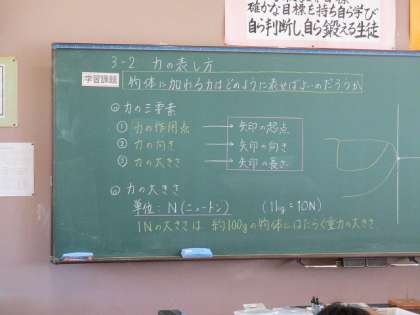 確かな目標を持ち自ら学び
自ら判断し、自ら鍛える生徒
3-2 力の表し方
学習課題
物体に加わる力はどのように表せばよいのだろうか
◎力の三要素
① 力の作用点 → 矢印の起点
② 力の向き → 矢印の向き
③ 力の大きさ → 矢印の長さ
◎力の大きさ
単位:N(ニュートン) (1kg=10N)
1Nの大きさは 約100gの物体にはたらく重力の大きさ